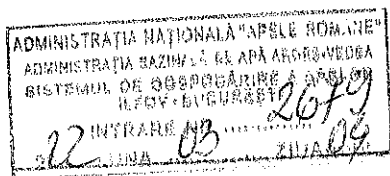 ADMINISTRAȚIA NAȚIONALĂ "APELE ROMÂNE"
ADMINISTRAȚIA BAZINALĂ DE APĂ ARGEȘ-VEDEA
SISTEMUL DE GOSPODĂRIRE A APELOR
ILFOV-BUCUREȘTI
INTRARE 2679
22 LUNA 03 ZIUA 04